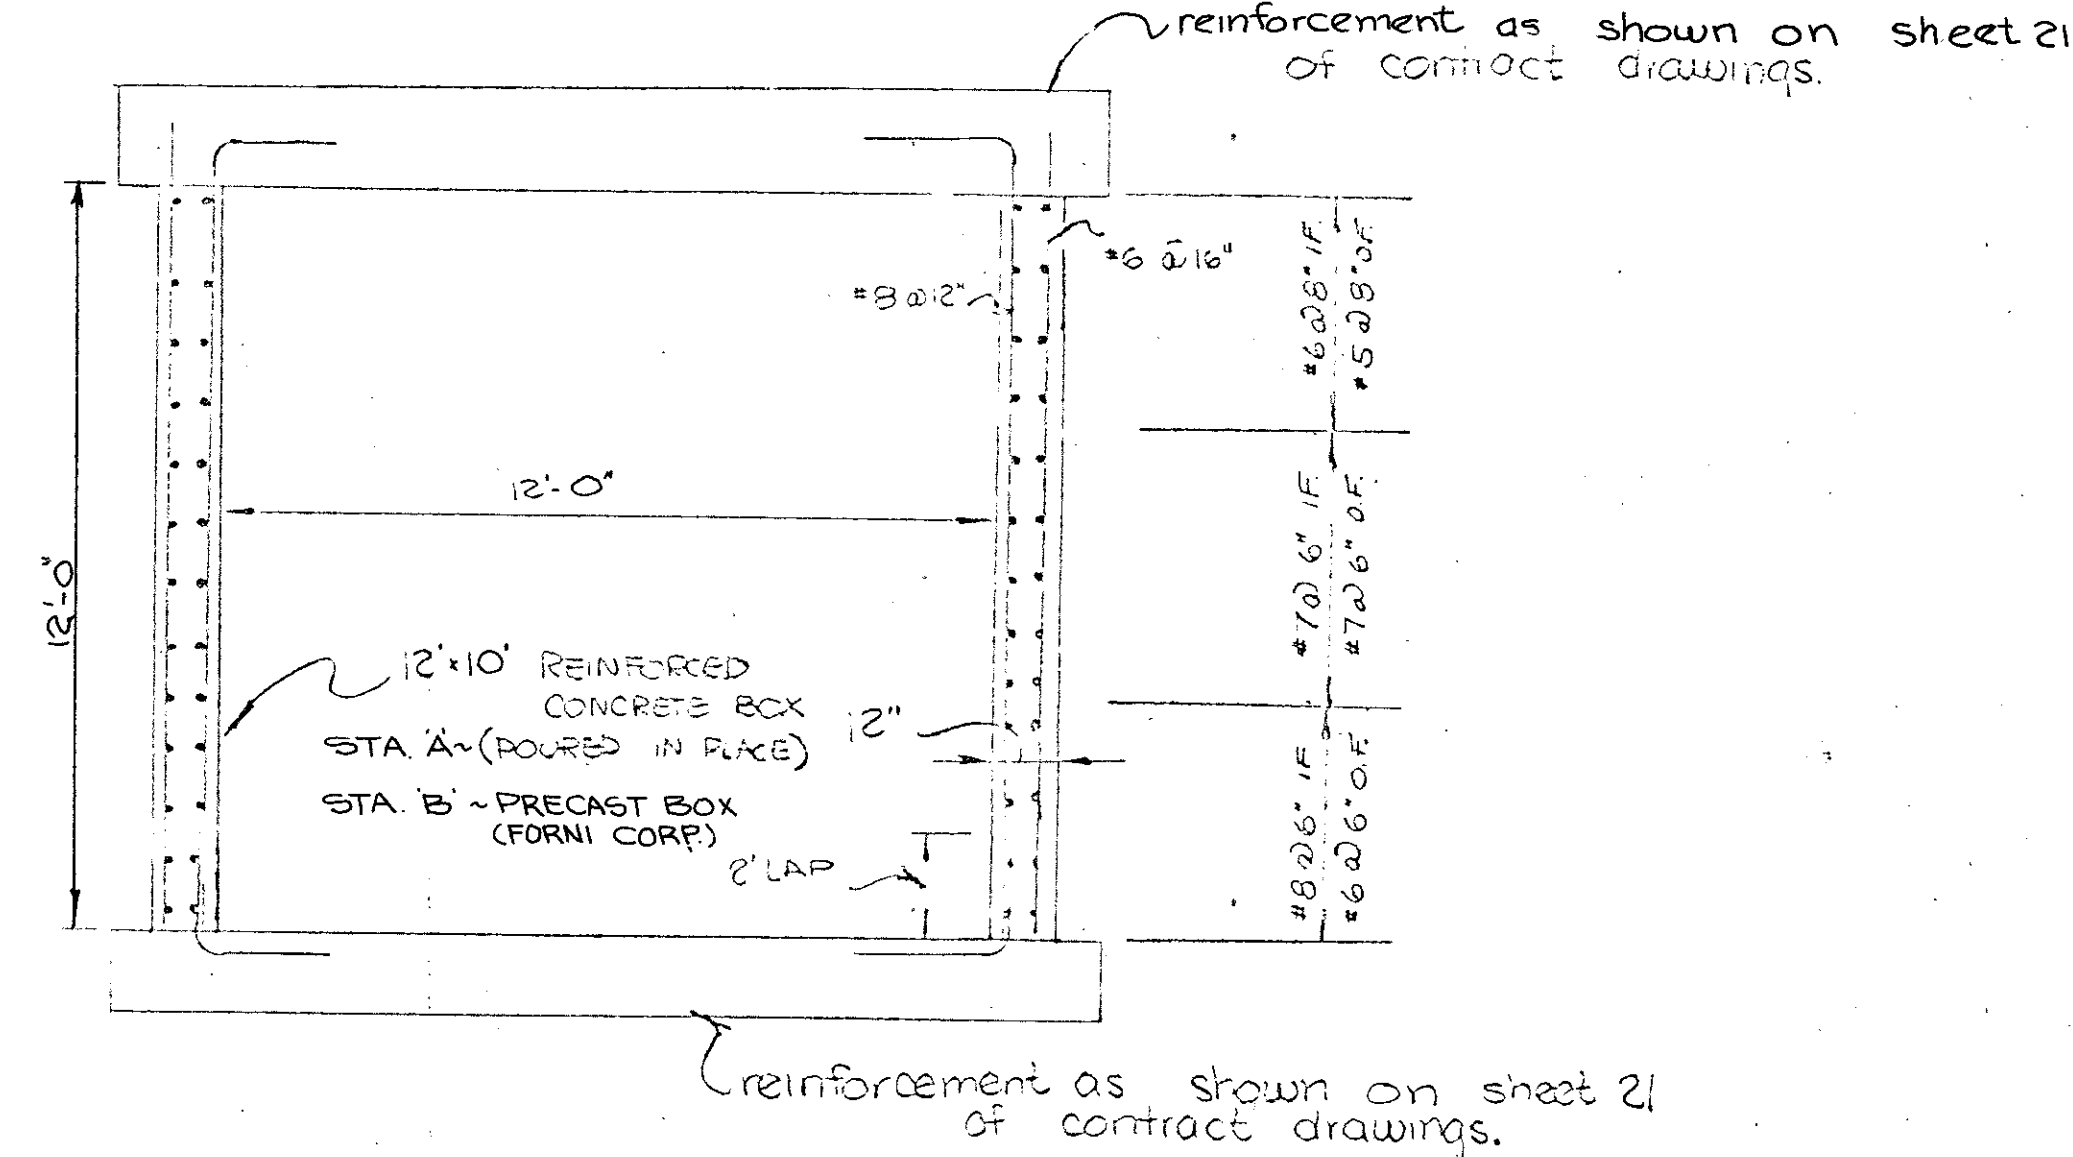 reinforcement as shown on sheet 21
of contract drawings.
#6 @ 16"
#8 @ 12"
#6 @ 8" I.F.
#5 @ 8" O.F.
12'-0"
#7 @ 6" I.F.
#7 @ 6" O.F.
12'-0"
12'x10' REINFORCED
CONCRETE BOX
STA. 'A' ~ (POURED IN PLACE)
12"
STA. 'B' ~ PRECAST BOX
(FORNI CORP.)
2' LAP
#8 @ 6" I.F.
#6 @ 6" O.F.
reinforcement as shown on sheet 21
of contract drawings.